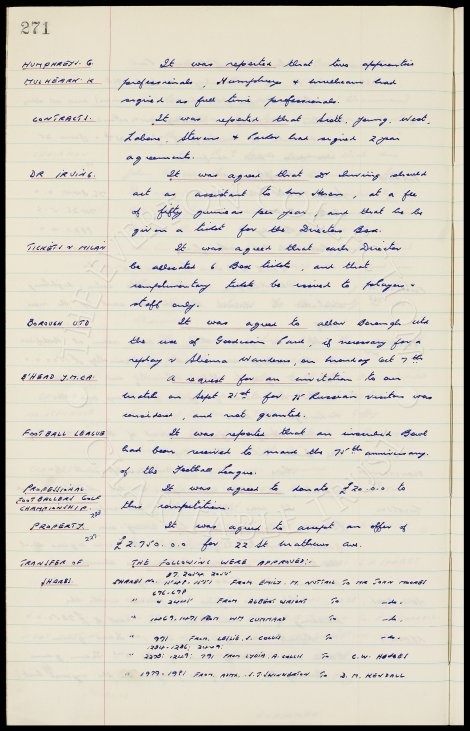 271
HUMPHREYS. G. It was reported that two apprentice
MULHEARN. K professionals, Humphreys & Mulhearn had
signed as full time professionals.
CONTRACTS. It was reported that Scott, Young, West,
Labone, Stevens & Parker had signed 2 year
agreements.
DR IRVING. It was agreed that Dr Irving should
act as assistant to, at a fee
of fifty guineas per year, and that he be
given a ticket for the Directors Box.
TICKETS V MILAN It was agreed that each Director
be allocated 6 Box tickets, and that
complimentary tickets be issued to players &
staff only.
BOROUGH UTD It was agreed to allow Borough Utd
the use of Goodison Park, if necessary for a
replay v Sliema Wanderers, on Monday Oct 7th
B'HEAD Y.M.C.A. A request for an invitation to our
match on Sept 21st for Russian visitors was
considered, and not granted.
FOOTBALL LEAGUE It was reported that an inscribed Bowl
had been received to mark the 75th anniversary
of the Football League.
PROFESSIONAL It was agreed to donate £20.0.0 to
FOOTBALLERS GOLF this competition.
CHAMPIONSHIP.
PROPERTY. It was agreed to accept an offer of
£2.750.0.0 for 22 St Mathews Ave.
TRANSFER OF THE FOLLOWING WERE APPROVED:-
SHARES. SHARES No. FROM EMILY. M. NUTTALL TO MR JOHN MOORES
676-678
" FROM ALBERT WRIGHT TO -do-
" 1469, 1471 FROM WM TO -do-
" 991 FROM. LESLIE. J. TO -do-
FROM LYDIA. A. TO C.W. HODGES
" 1979-1981 FROM. J.T. SWINNERTON TO D.M. KENDALL